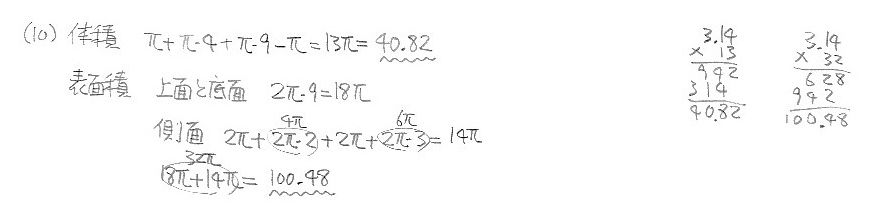 (10) 体積 π+π·4+π·9-π=13π=40.82
表面積 上面と底面 2π·9=18π
側面 2π+2π·2+2π+2π·3=14π
4π 6π
32π
18π+14π=100.48
3.14
× 13
942
314
40.82
3.14
× 32
628
942
100.48